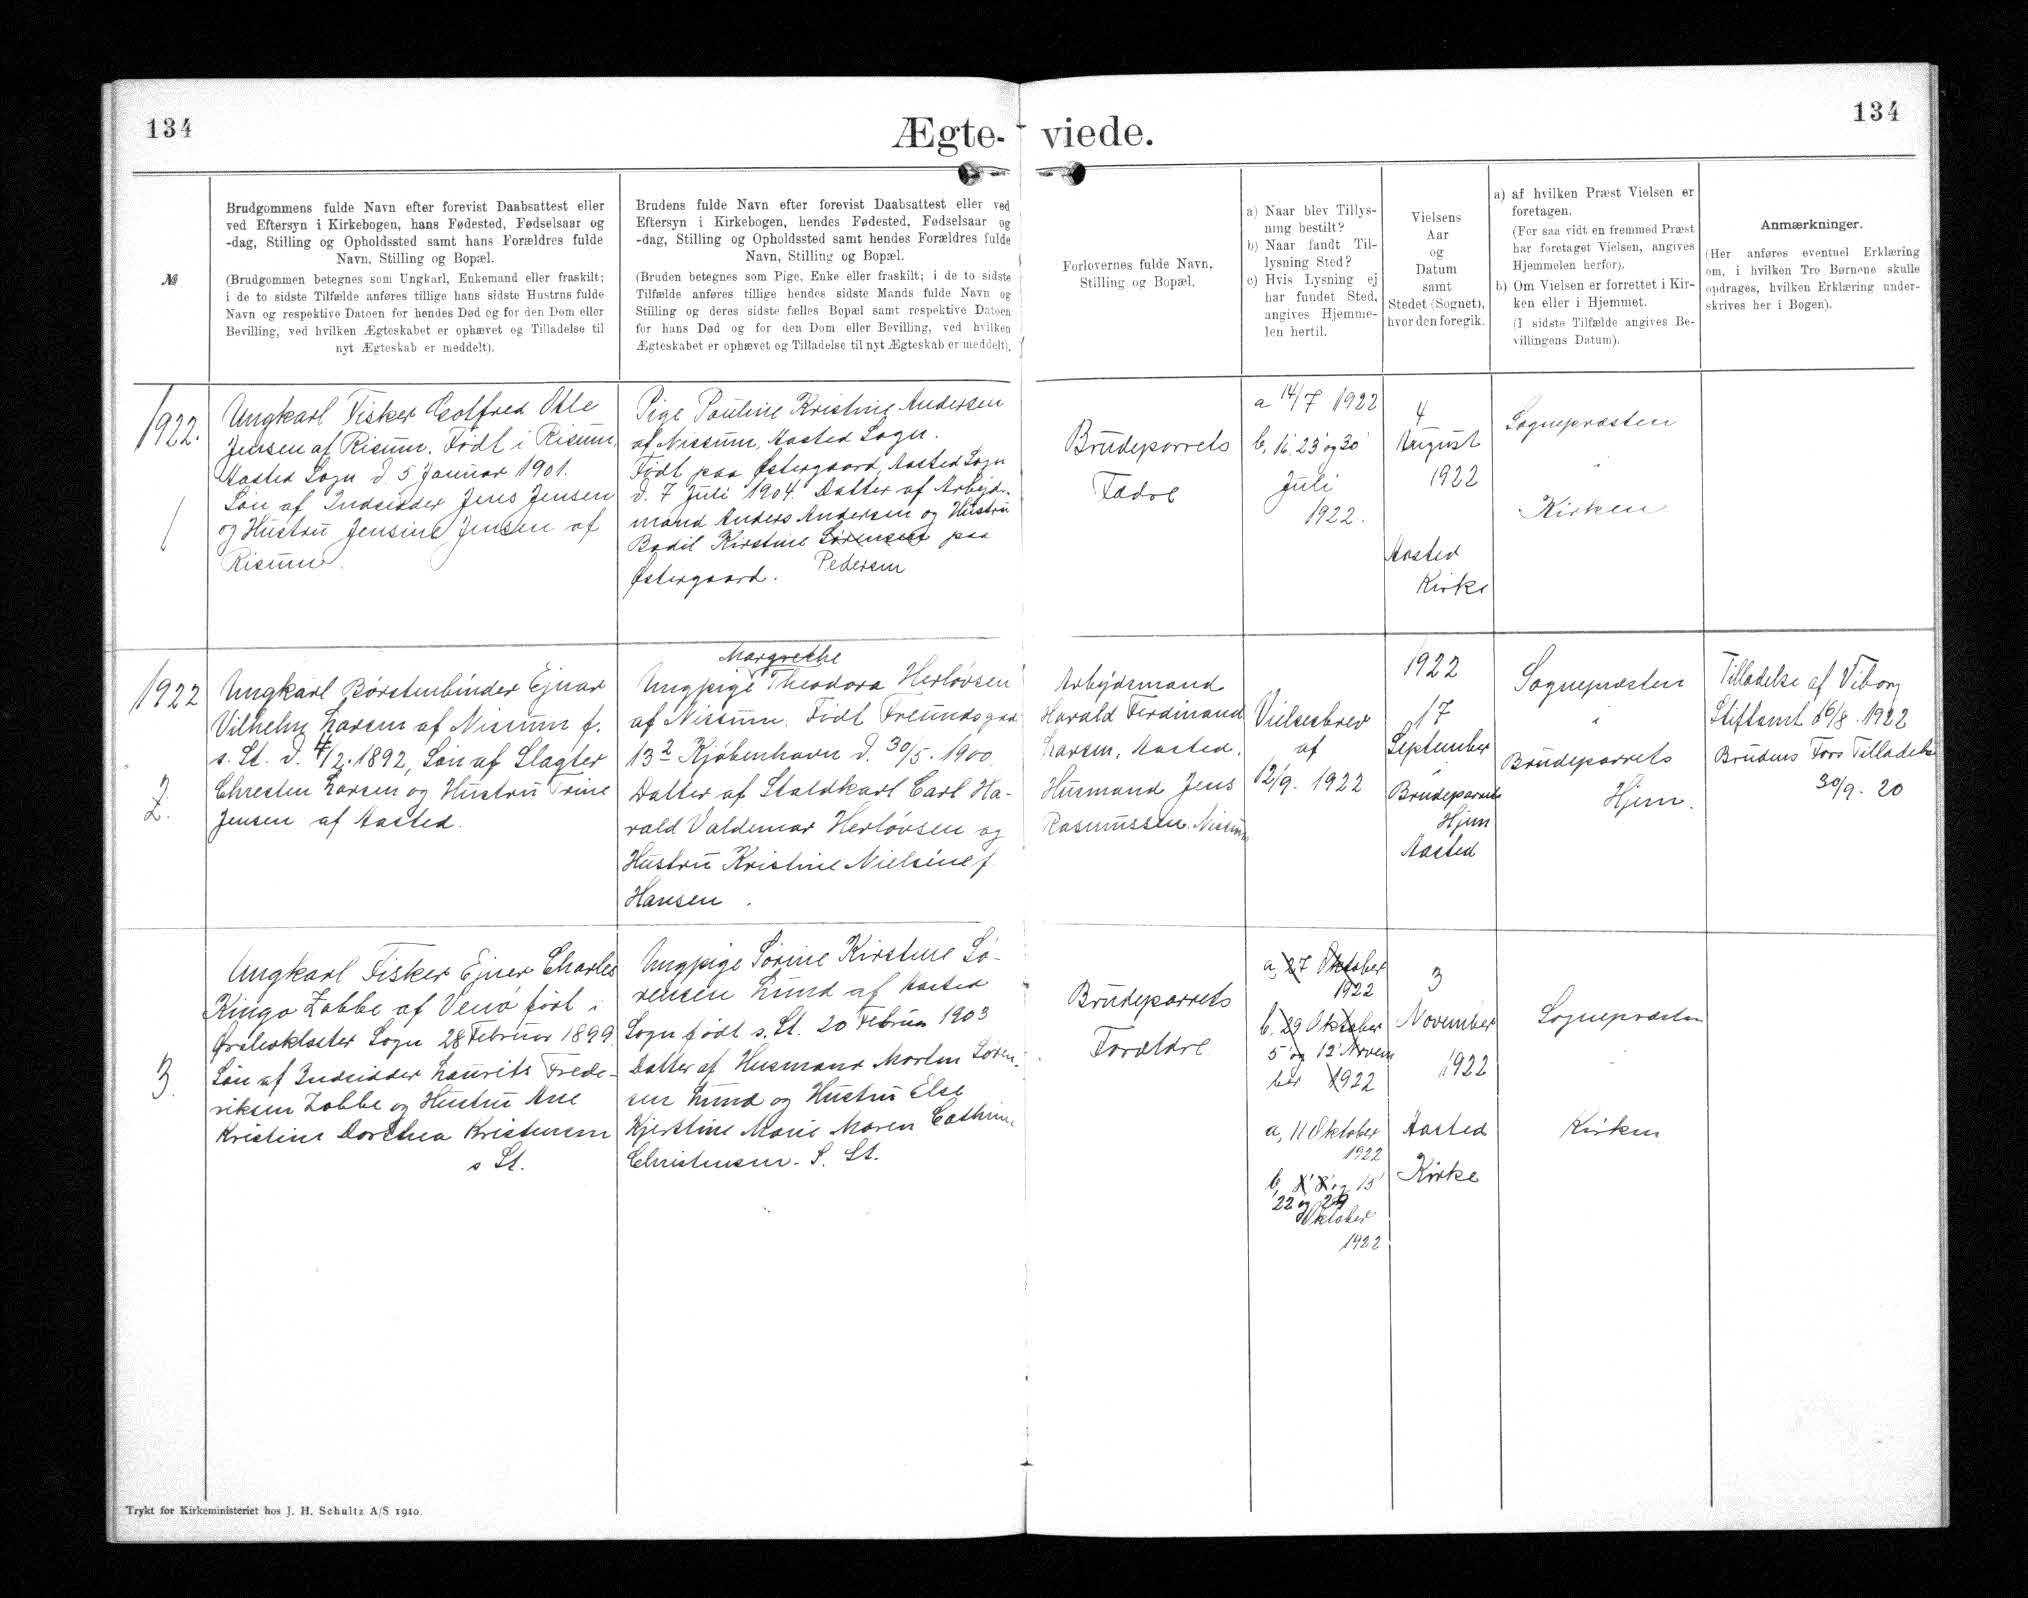 134
Ægte- viede.
134
№
Brudgommens fulde Navn efter forevist Daabsattest eller
ved Eftersyn i Kirkebogen, hans Fødested, Fødselsaar og
-dag, Stilling og Opholdssted samt hans Forældres fulde
Navn, Stilling og Bopæl.
(Brudgommen betegnes som Ungkarl, Enkemand eller fraskilt;
i de to sidste Tilfælde anføres tillige hans sidste Hustrus fulde
Navn og respektive Datoen for hendes Død og for den Dom eller
Bevilling, ved hvilken Ægteskabet er ophævet og Tilladelse til
nyt Ægteskab er meddelt).
Brudens fulde Navn efter forevist Daabsattest eller ved
Eftersyn i Kirkebogen, hendes Fødested, Fødselsaar og
-dag, Stilling og Opholdssted samt hendes Forældres fulde
Navn, Stilling og Bopæl.
(Bruden betegnes som Pige, Enke eller fraskilt; i de to sidste
Tilfælde anføres tillige hendes sidste Mands fulde Navn og
Stilling og deres sidste fælles Bopæl samt respektive Datoen
for hans Død og for den Dom eller Bevilling, ved hvilken
Ægteskabet er ophævet og Tilladelse til nyt Ægteskab er meddelt).
Forlovernes fulde Navn,
Stilling og Bopæl.
a) Naar blev Tillys-
ning bestilt?
b) Naar fandt Til-
lysning Sted?
c) Hvis Lysning ej
har fundet Sted,
angives Hjemme-
len hertil.
Vielsens
Aar
og
Datum
samt
Stedet (Sognet),
hvor den foregik.
a) af hvilken Præst Vielsen er
foretagen.
(For saa vidt en fremmed Præst
har foretaget Vielsen, angives
Hjemmelen herfor).
b) Om Vielsen er forrettet i Kir-
ken eller i Hjemmet.
(I sidste Tilfælde angives Be-
villingens Datum).
Anmærkninger.
(Her anføres eventuel Erklæring
om, i hvilken Tro Børnene skulle
opdrages, hvilken Erklæring under-
skrives her i Bogen).
1922.
1
Ungkarl Fisker Gotfred Otte
Jensen af Risum. Født i Risum,
Aasted Sogn d. 5 Januar 1901.
Søn af Indsidder Jens Jensen
og Hustru Jensine Jensen af
Risum.
Pige Pauline Kristine Andersen
af Nissum, Aasted Sogn.
Født paa Østergaard, Aasted Sogn
d. 7 Juli 1904. Datter af Arbejds-
mand Anders Andersen og Hustru
Bodil Kirstine Sørensen paa
Pedersen
Østergaard.
Brudeparrets
Fædre
a 14/7 1922
b, 16' 23' og 30'
Juli
1922.
4
August
1922
Aasted
Kirke
Sognepræsten
i
Kirken
1922
2.
Ungkarl Børstenbinder Ejnar
Vilhelm Larsen af Nissum f.
s. St. d. 4/2. 1892, Søn af Slagter
Chresten Larsen og Hustru Trine
Jensen af Aasted.
Margrethe
Ungpige Theodora Herløvsen
af Nissum. Født Freundsgade
13² Kjøbenhavn d. 30/5. 1900
Datter af Staldkarl Carl Ha-
rald Valdemar Herløvsen og
Hustru Kristine Nielsine f.
Hansen.
Arbejdsmand
Harald Ferdinand
Larsen, Aasted.
Husmand Jens
Rasmussen. Nissum
Vielsesbrev
af
12/9. 1922
1922
17
September
Brudeparrets
Hjem
Aasted
Sognepræsten
i
Brudeparrets
Hjem.
Tilladelse af Viborg
Stiftsamt 16/8. 1922
Brudens Fars Tilladelse
30/9. 20
3.
Ungkarl Fisker Ejner Charles
Kingo Zobbe af Venø født i
Ørslevkloster Sogn 28 Februar 1899
Søn af Indsidder Laurits Frede-
riksen Zobbe og Hustru Ane
Kristine Dorthea Kristensen
s St.
Ungpige Sørine Kirstine Sø-
rensen Lund af Aasted
Sogn født s. St. 20 Februar 1903
Datter af Husmand Morten Søren-
sen Lund og Hustru Else
Kjerstine Marie Maren Cathrine
Christensen. S. St.
Brudeparrets
Forældre
a, 27 Oktober
1922
b. 29 Oktober
5' og 12' Novem
ber 1922
a, 11 Oktober
1922
b, 1' 8' og 15'
22 og 29
Oktober
1922
3
November
1922
Aasted
Kirke
Sognepræsten
Kirken
Trykt for Kirkeministeriet hos J. H. Schultz A/S 1910.